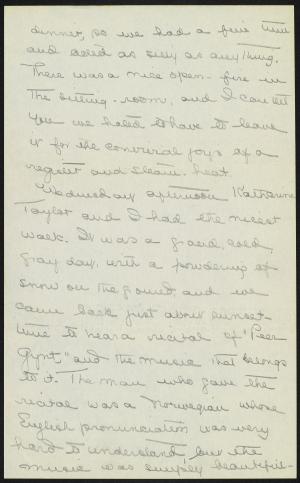 dinner, so we had a fine time
and acted as silly as anything.
There was a nice open-fire in
the sitting-room, and I can tell
you we hated to have to leave
it for the convivial joys of a
register and steam heat.
Wednesday afternoon Katharine
Taylor and I had the nicest
walk. It was a grand, cold,
gray day, with a powdering of
snow on the ground, and we
came back just about sunset-
time to hear a recital of "Peer
Gynt" and the music that belongs
to it. The man who gave the
recital was a Norwegian whose
English pronunciation was very
hard to understand, but the
music was simply beautiful-